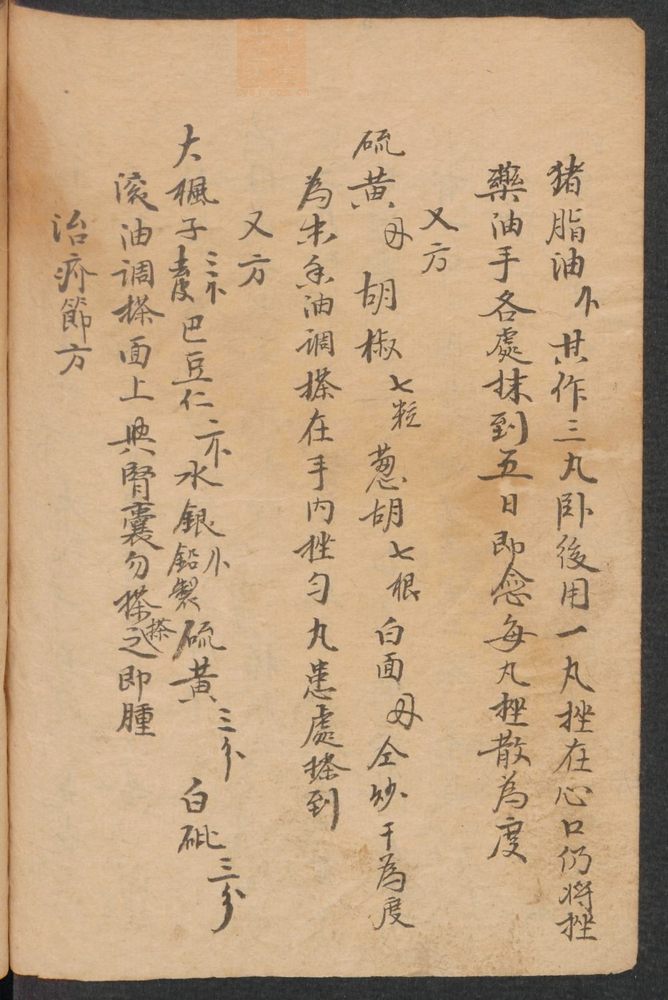 猪脂油 共作三丸卧後用一丸挫在心口仍将挫
藥油手各處抹到五日即念每丸挫散為度
又方
硫黄 胡椒七粒葱胡七根白面 仝炒干為度
為末香油調搽在手内挫匀凡患處搽到
又方
大楓子三 去皮巴豆仁 水銀 鉛製硫黄三分 白砒三分
滚油調搽面上與腎囊勿搽搽之即腫
治疥節方